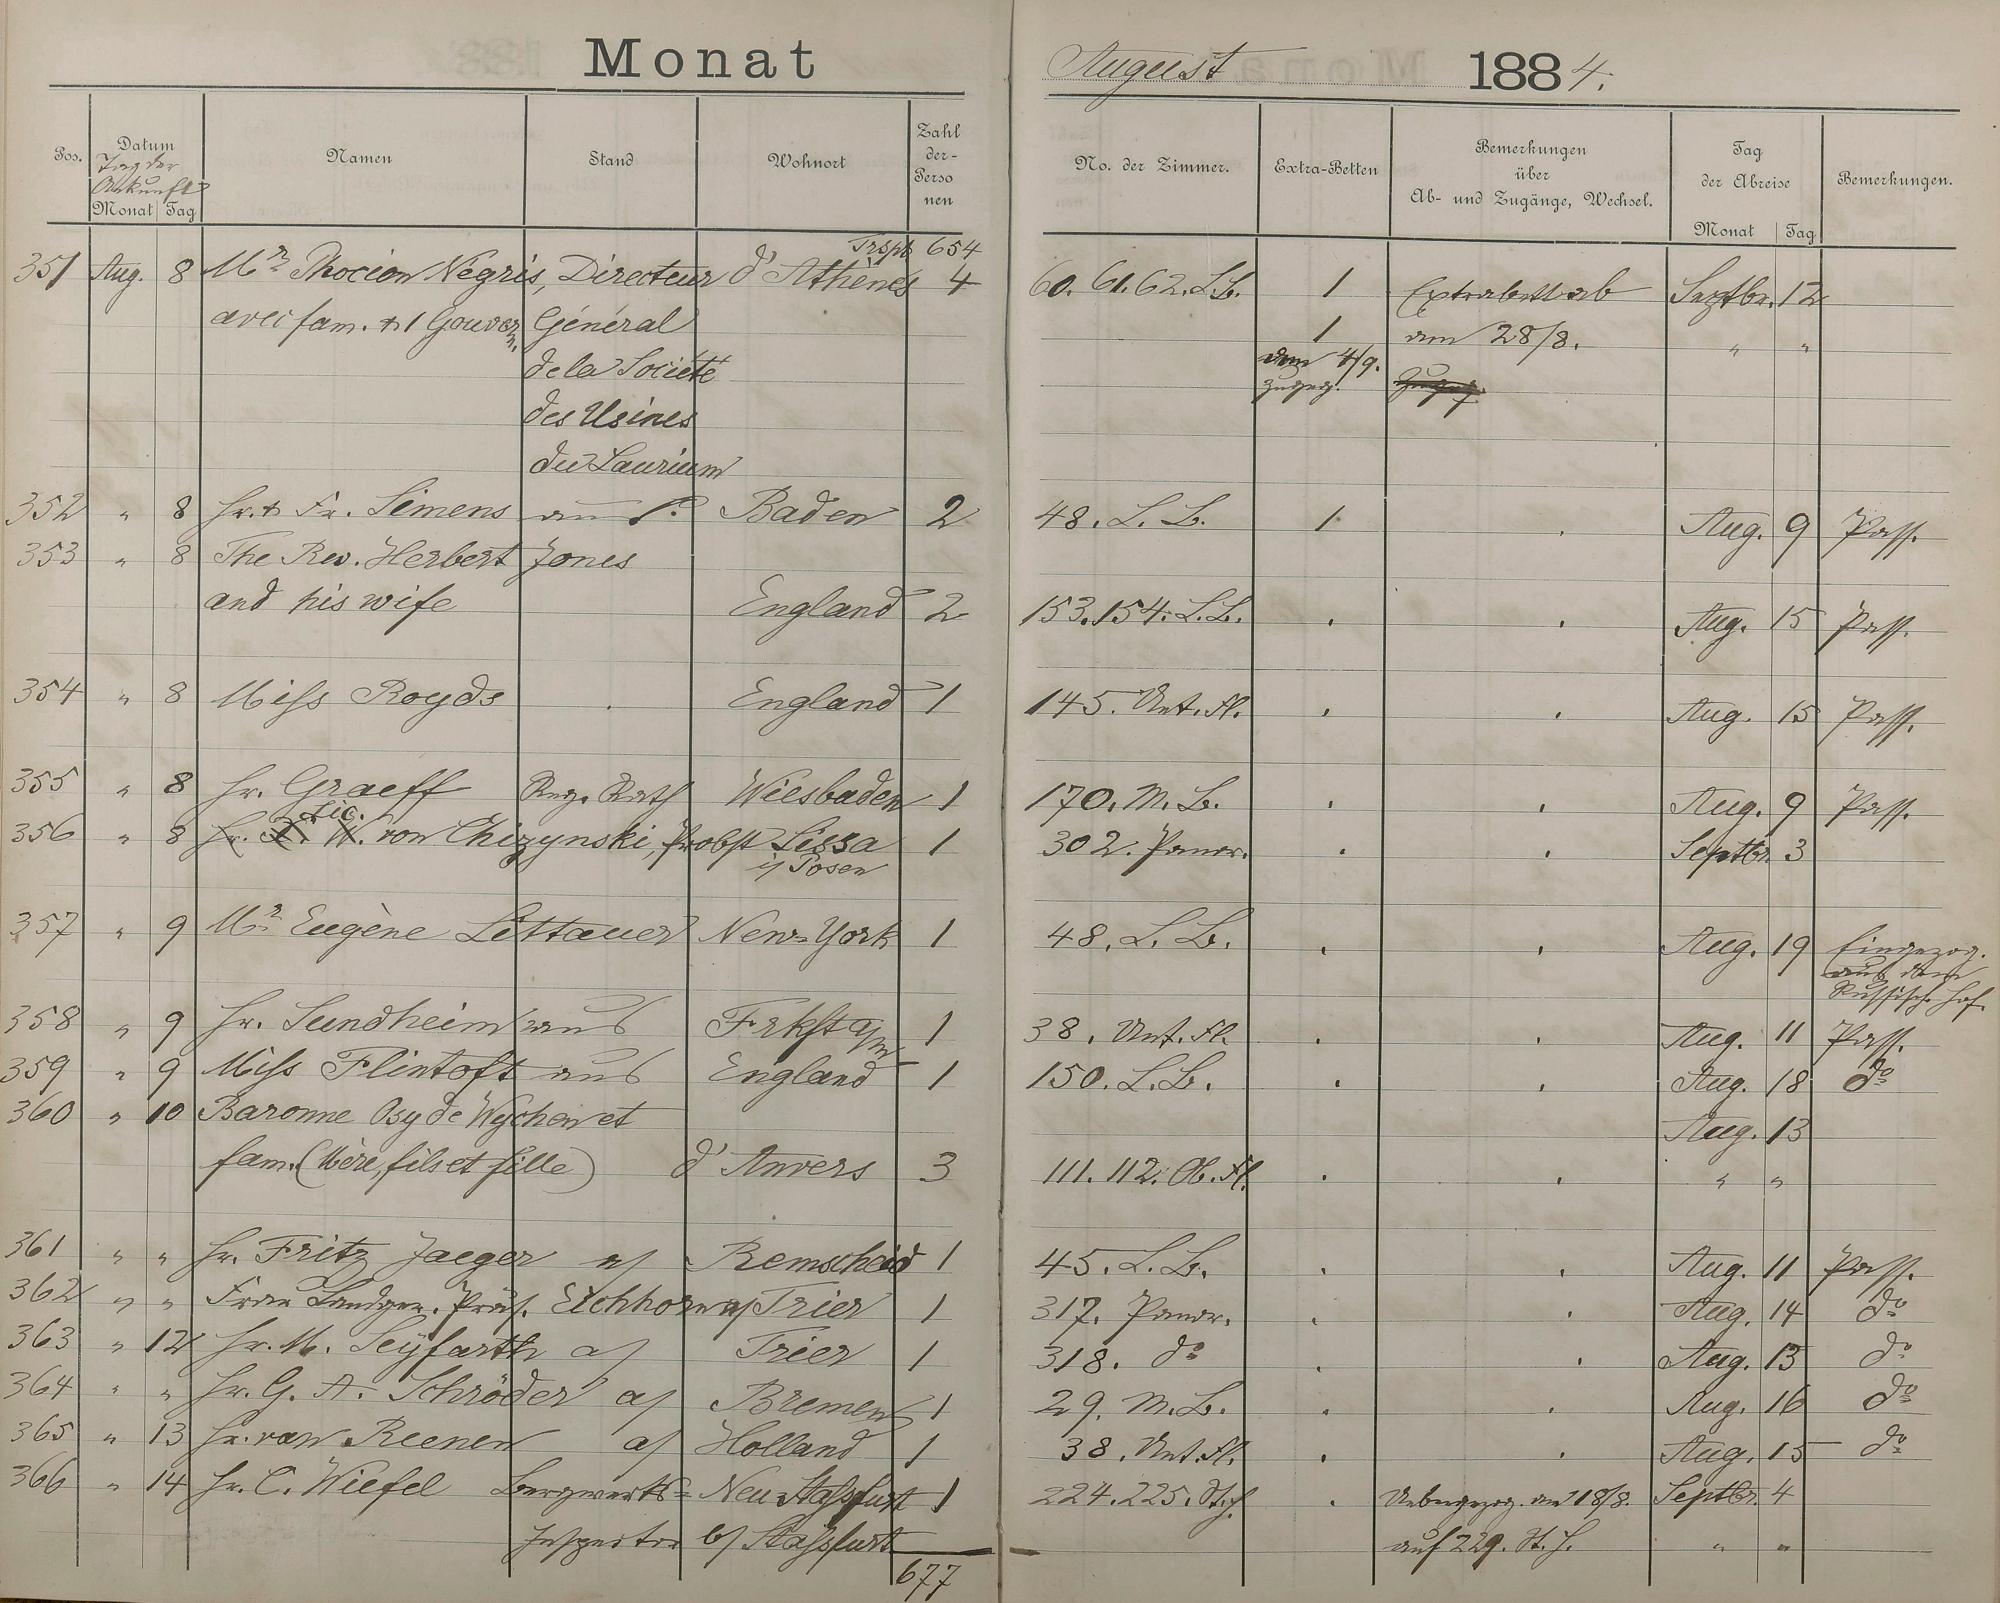 Monat August 1884.
Pos. Datum Namen Stand Wohnort Zahl der Personen No. der Zimmer. Extra-Betten Bemerkungen über Ab- und Zugänge, Wechsel. Tag der Abreise Bemerkungen.
Tag der Ankunft
Monat Tag Monat Tag
Trspt 654
351 Aug. 8 Mr Phocion Negris, Directeur d'Athènes 4 60. 61. 62. L.B. 1 Extrabett ab Septbr. 12
avec fam. + 1 Gouvern. Général 1 am 28/8. " "
de la Société dem 4/9. zugeg.
des Usines
du Laurium
352 " 8 Hr. + Fr. Simens aus Baden 2 48. L. B. 1 . Aug. 9 Pass.
353 " 8 The Rev. Herbert Jones
and his wife England 2 153. 154. L.B. . . Aug. 15 Pass.
354 " 8 Miss Royds . England 1 145. Unt. Fl. . . Aug. 15 Pass.
355 " 8 Hr. Graeff Reg. Rath Wiesbaden 1 170. M. B. . . Aug. 9 Pass.
Lic.
356 " 8 Hr. W. von Chizynski, Probst Lissa 1 302. Panor. . . Septbr. 3
i/ Posen
357 " 9 Mr Eugène Littauer New-York 1 48. L. B. . . Aug. 19 Eingezog.
aus dem
Russisch. Hof.
358 " 9 Hr. Sundheim aus Frkft a/m 1 38. Unt. Fl. . . Aug. 11 Pass.
359 " 9 Miss Flintoft aus England 1 150. L.B. . . Aug. 18 do
360 " 10 Baronne Osy de Wychen et Aug. 13
fam. (Mère, fils et fille) d'Anvers 3 111. 112. Ob. Fl. . . " "
361 " " Hr. Fritz Jaeger a/ Remscheid 1 45. L. B. . . Aug. 11 Pass.
362 " " Frau Landger. Präs. Eichhorn a/ Trier 1 317. Panor. . . Aug. 14 do
363 " 12 Hr. M. Seyfarth a/ Trier 1 318. do . . Aug. 13 do
364 " " Hr. G. A. Schröder a/ Bremen 1 29. M. B. . . Aug. 16 do
365 " 13 Hr. van Reenen a/ Holland 1 38. Unt. Fl. . . Aug. 15 do
366 " 14 Hr. C. Wiefel Bergwerks- Neu Stassfurt 1 224. 225. St. H. . Uebergezog. am 18/8. Septbr. 4
Inspector b/ Stassfurt auf 229. St. H. " "
677